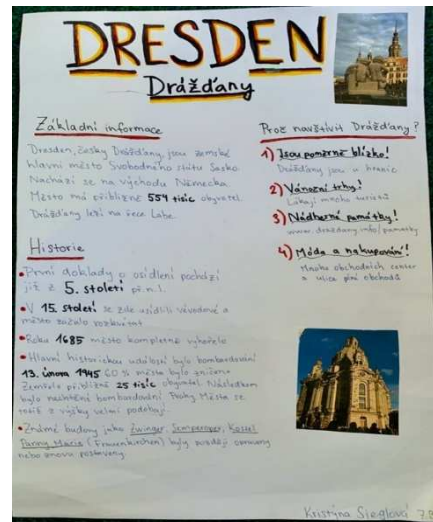 DRESDEN
Drážďany
Základní informace
Dresden, česky Drážďany, jsou zemské
hlavní město Svobodného státu Sasko.
Nachází se na východu Německa.
Město má přibližně 559 tisíc obyvatel.
Drážďany leží na řece Labe.
Historie
První doklady o osídlení pochází
již z 5. století př. n. l.
V 15. století se zde usídlili vévodové a
město začalo rozkvétat
Roku 1685 město kompletně vyhořelo
Hlavní historickou událostí bylo bombardování
13. února 1945 60 % města bylo zničeno
Zemřelo přibližně 25 tisíc obyvatel. Následkem
bylo nechtěné bombardování Prahy. Města se
totiž z výšky velmi podobají.
Známé budovy jako Zwinger, Semperoper, Kostel
Panny Marie (Frauenkirchen) byly později opraveny
nebo znovu postaveny.
Proč navštívit Drážďany?
1) Jsou poměrně blízko!
Drážďany jsou u hranic
2) Vánoční trhy!
Lákají mnoho turistů
3) Nádherné památky!
www.drazdany.info/pamatky
4) Móda a nakupování!
Mnoho obchodních center
a ulice plné obchodů
Kristýna Sieglová 7.B